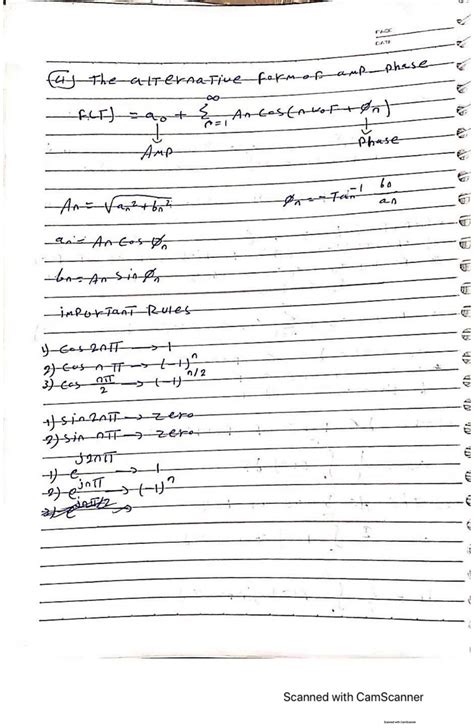 PAGE
DATE
(4) The alternative form of amp-phase
F(T) = a₀ + ∞Σn=1 An Cos(nω₀T + Øn)
↓ ↓
Amp Phase
An = √(an² + bn²) Øn = - Tan⁻¹ bn/an
an = An Cos Øn
bn = An Sin Øn
important Rules
1) Cos 2nπ → 1
2) Cos nπ → (-1)ⁿ
3) Cos nπ/2 → (-1)^n/2
1) Sin 2nπ → zero
2) Sin nπ → zero
1) e^j2nπ → 1
2) e^jnπ → (-1)ⁿ
3) e^jnπ/2 →
Scanned with CamScanner
Scanned with CamScanner